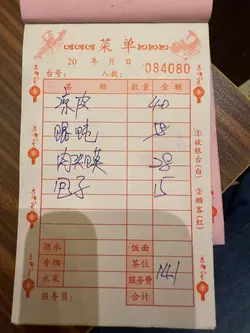 菜单
20 年 月 日 084080
台号： 人数：
名称 数量 金额
凉皮 40
馄饨 58
肉夹馍 28
包子 15
酒水 饭面
香烟 茶位
水果 服务费
服务员： 合计 141
①收银台(白) ②顾客(红)